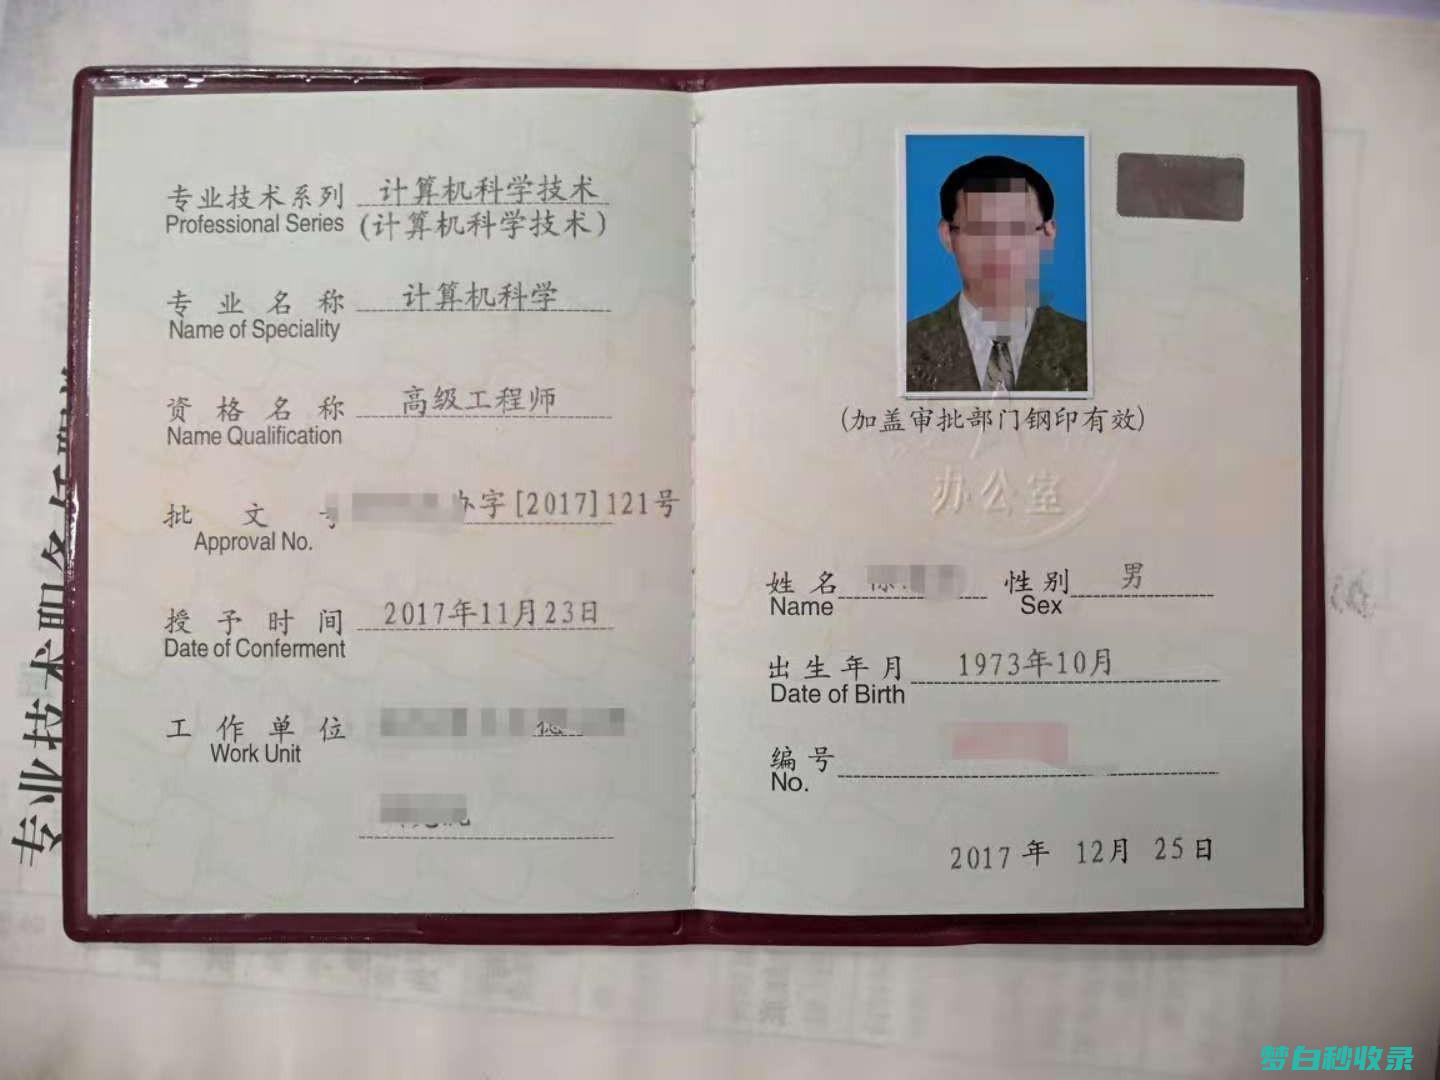 专业技术系列 计算机科学技术
Professional Series (计算机科学技术)
专业名称 计算机科学
Name of Speciality
资格名称 高级工程师
Name Qualification
批文 字[2017]121号
Approval No.
授予时间 2017年11月23日
Date of Conferment
工作单位
Work Unit
(加盖审批部门钢印有效)
办公室
姓名 性别 男
Name Sex
出生年月 1973年10月
Date of Birth
编号
No.
2017年 12月 25日
专业技术职务任职
梦白秒收录